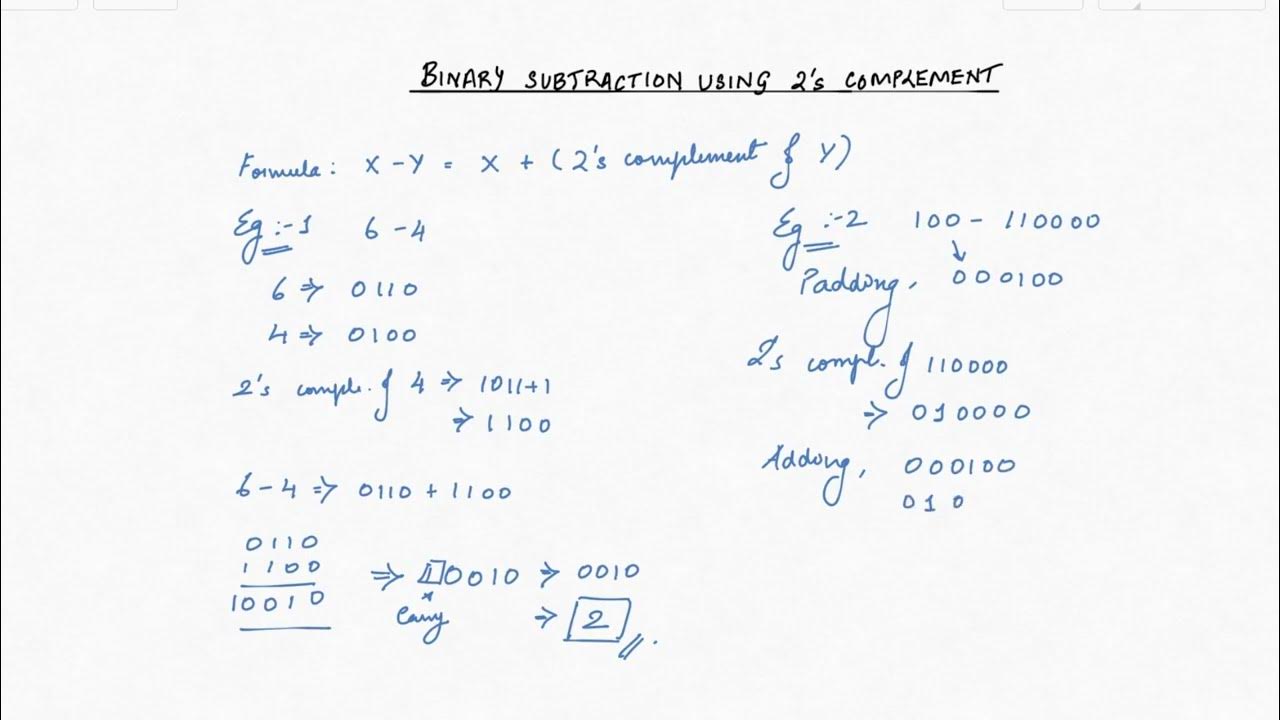 BINARY SUBTRACTION USING 2's COMPLEMENT
Formula: X - Y = X + (2's complement of Y)
Eg :-1 6 - 4
6 ⇒ 0110
4 ⇒ 0100
2's comple. of 4 ⇒ 1011+1
⇒ 1100
6-4 ⇒ 0110 + 1100
0110
1100
10010
⇒ 10010 → 0010
Carry → 2
Eg :-2 100 - 110000
Padding, 000100
2's compl. of 110000
⇒ 010000
Adding, 000100
010